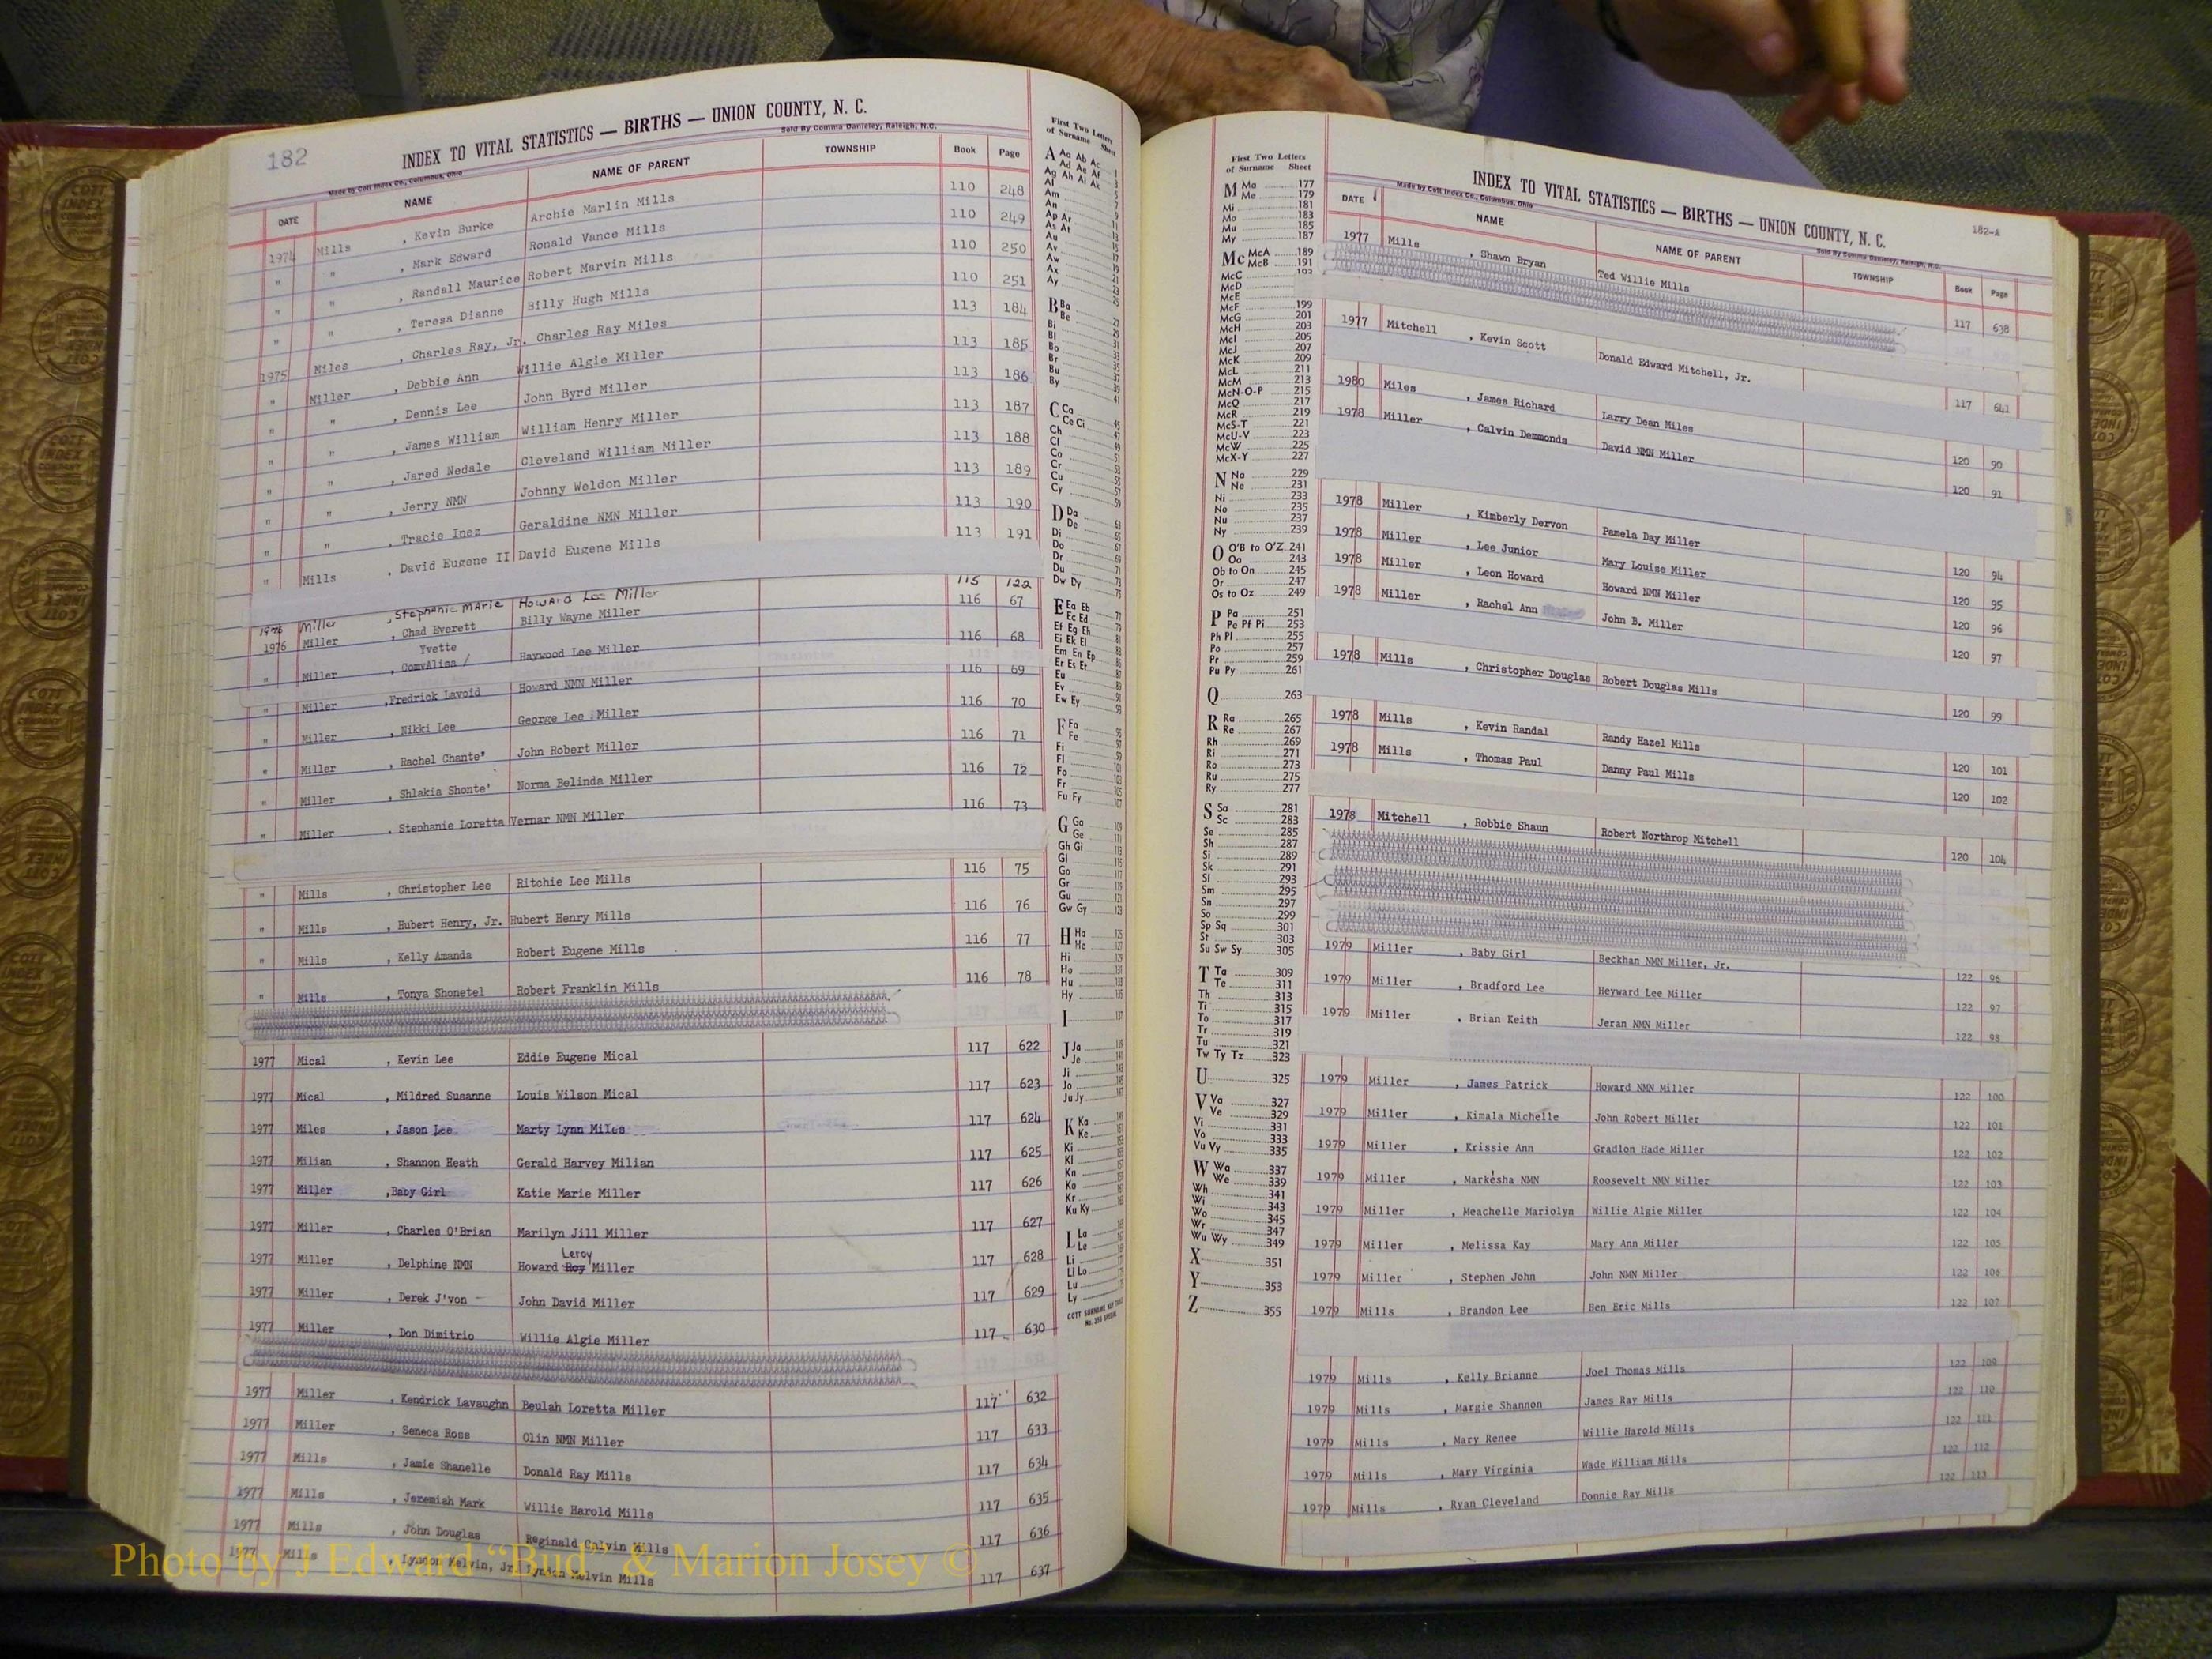 182
INDEX TO VITAL STATISTICS — BIRTHS — UNION COUNTY, N. C.
Made by Cott Index Co., Columbus, Ohio
Sold By Comma Danieley, Raleigh, N.C.
DATE NAME NAME OF PARENT TOWNSHIP Book Page
1974 Mills , Kevin Burke Archie Marlin Mills 110 248
" " , Mark Edward Ronald Vance Mills 110 249
" " , Randall Maurice Robert Marvin Mills 110 250
" " , Teresa Dianne Billy Hugh Mills 110 251
1975 Miles , Charles Ray, Jr. Charles Ray Miles 113 184
" Miller , Debbie Ann Willie Algie Miller 113 185
" " , Dennis Lee John Byrd Miller 113 186
" " , James William William Henry Miller 113 187
" " , Jared Nedale Cleveland William Miller 113 188
" " , Jerry NMN Johnny Weldon Miller 113 189
" " , Tracie Inez Geraldine NMN Miller 113 190
" Mills , David Eugene II David Eugene Mills 113 191
1976 Miller , Stephanie Marie Howard Lee Miller 115 122
1976 Miller , Chad Everett Billy Wayne Miller 116 67
Yvette
" Miller , ComvAlisa / Haywood Lee Miller 116 68
" Miller ,Fredrick Lavoid Howard NMN Miller 116 69
" Miller , Nikki Lee George Lee Miller 116 70
" Miller , Rachel Chante' John Robert Miller 116 71
" Miller , Shlakia Shonte' Norma Belinda Miller 116 72
" Miller , Stephanie Loretta Vernar NMN Miller 116 73
" Mills , Christopher Lee Ritchie Lee Mills 116 75
" Mills , Hubert Henry, Jr. Hubert Henry Mills 116 76
" Mills , Kelly Amanda Robert Eugene Mills 116 77
" Mills , Tonya Shonetel Robert Franklin Mills 116 78
1977 Mical , Kevin Lee Eddie Eugene Mical 117 622
1977 Mical , Mildred Susanne Louis Wilson Mical 117 623
1977 Miles , Jason Lee Marty Lynn Miles 117 624
1977 Milian , Shannon Heath Gerald Harvey Milian 117 625
1977 Miller ,Baby Girl Katie Marie Miller 117 626
1977 Miller , Charles O'Brian Marilyn Jill Miller 117 627
Leroy
1977 Miller , Delphine NMN Howard Roy Miller 117 628
1977 Miller , Derek J'von John David Miller 117 629
1977 Miller , Don Dimitrio Willie Algie Miller 117 630
1977 Miller , Kendrick Lavaughn Beulah Loretta Miller 117 632
1977 Miller , Seneca Ross Olin NMN Miller 117 633
1977 Mills , Jamie Shanelle Donald Ray Mills 117 634
1977 Mills , Jeremiah Mark Willie Harold Mills 117 635
1977 Mills , John Douglas Reginald Calvin Mills 117 636
1977 Mills , Lyndon Melvin, Jr. Lyndon Melvin Mills 117 637
Photo by J Edward “Bud” & Marion Josey ©
First Two Letters
of Surname Sheet
A Aa Ab Ac
Ad Ae Af
Ag Ah Ai Ak
Al
Am
An
Ap Ar
As At
Au
Av
Aw
Ax
Ay
B Ba
Be
Bi
Bl
Bo
Br
Bu
By
C Ca
Ce Ci
Ch
Cl
Co
Cr
Cu
Cy
D Da
De
Di
Do
Dr
Du
Dw Dy
E Ea Eb
Ec Ed
Ef Eg Eh
Ei Ek El
Em En Ep
Er Es Et
Eu
Ev
Ew Ey
F Fa
Fe
Fi
Fl
Fo
Fr
Fu Fy
G Ga
Ge
Gh Gi
Gl
Go
Gr
Gu
Gw Gy
H Ha
He
Hi
Ho
Hu
Hy
I
J Ja
Je
Ji
Jo
Ju Jy
K Ka
Ke
Ki
Kl
Kn
Ko
Kr
Ku Ky
L La
Le
Li
Ll Lo
Lu
Ly
First Two Letters
of Surname Sheet
M Ma 177
Me 179
Mi 181
Mo 183
Mu 185
My 187
Mc McA 189
McB 191
McC 193
McD
McE
McF 199
McG 201
McH 203
McI 205
McJ 207
McK 209
McL 211
McM 213
McN-O-P 215
McQ 217
McR 219
McS-T 221
McU-V 223
McW 225
McX-Y 227
N Na 229
Ne 231
Ni 233
No 235
Nu 237
Ny 239
O O'B to O'Z 241
Oa 243
Ob to On 245
Or 247
Os to Oz 249
P Pa 251
Pe Pf Pi 253
Ph Pl 255
Po 257
Pr 259
Pu Py 261
Q 263
R Ra 265
Re 267
Rh 269
Ri 271
Ro 273
Ru 275
Ry 277
S Sa 281
Sc 283
Se 285
Sh 287
Si 289
Sk 291
Sl 293
Sm 295
Sn 297
So 299
Sp Sq 301
St 303
Su Sw Sy 305
T Ta 309
Te 311
Th 313
Ti 315
To 317
Tr 319
Tu 321
Tw Ty Tz 323
U 325
V Va 327
Ve 329
Vi 331
Vo 333
Vu Vy 335
W Wa 337
We 339
Wh 341
Wi 343
Wo 345
Wr 347
Wu Wy 349
X 351
Y 353
Z 355
182-A
INDEX TO VITAL STATISTICS — BIRTHS — UNION COUNTY, N. C.
Made by Cott Index Co., Columbus, Ohio
Sold By Comma Danieley, Raleigh, N.C.
DATE NAME NAME OF PARENT TOWNSHIP Book Page
1977 Mills , Shawn Bryan Ted Willie Mills 117 638
1977 Mitchell , Kevin Scott Donald Edward Mitchell, Jr. 117 641
1980 Miles , James Richard Larry Dean Miles 120 90
1978 Miller , Calvin Demmonds David NMN Miller 120 91
1978 Miller , Kimberly Dervon Pamela Day Miller 120 94
1978 Miller , Lee Junior Mary Louise Miller 120 95
1978 Miller , Leon Howard Howard NMN Miller 120 96
1978 Miller , Rachel Ann John B. Miller 120 97
1978 Mills , Christopher Douglas Robert Douglas Mills 120 99
1978 Mills , Kevin Randal Randy Hazel Mills 120 101
1978 Mills , Thomas Paul Danny Paul Mills 120 102
1978 Mitchell , Robbie Shaun Robert Northrop Mitchell 120 104
1979 Miller , Baby Girl Beckhan NMN Miller, Jr. 122 96
1979 Miller , Bradford Lee Heyward Lee Miller 122 97
1979 Miller , Brian Keith Jeran NMN Miller 122 98
1979 Miller , James Patrick Howard NMN Miller 122 100
1979 Miller , Kimala Michelle John Robert Miller 122 101
1979 Miller , Krissie Ann Gradlon Hade Miller 122 102
1979 Miller , Markesha NMN Roosevelt NMN Miller 122 103
1979 Miller , Meachelle Mariolyn Willie Algie Miller 122 104
1979 Miller , Melissa Kay Mary Ann Miller 122 105
1979 Miller , Stephen John John NMN Miller 122 106
1979 Mills , Brandon Lee Ben Eric Mills 122 107
1979 Mills , Kelly Brianne Joel Thomas Mills 122 109
1979 Mills , Margie Shannon James Ray Mills 122 110
1979 Mills , Mary Renee Willie Harold Mills 122 111
1979 Mills , Mary Virginia Wade William Mills 122 112
1979 Mills , Ryan Cleveland Donnie Ray Mills 122 113